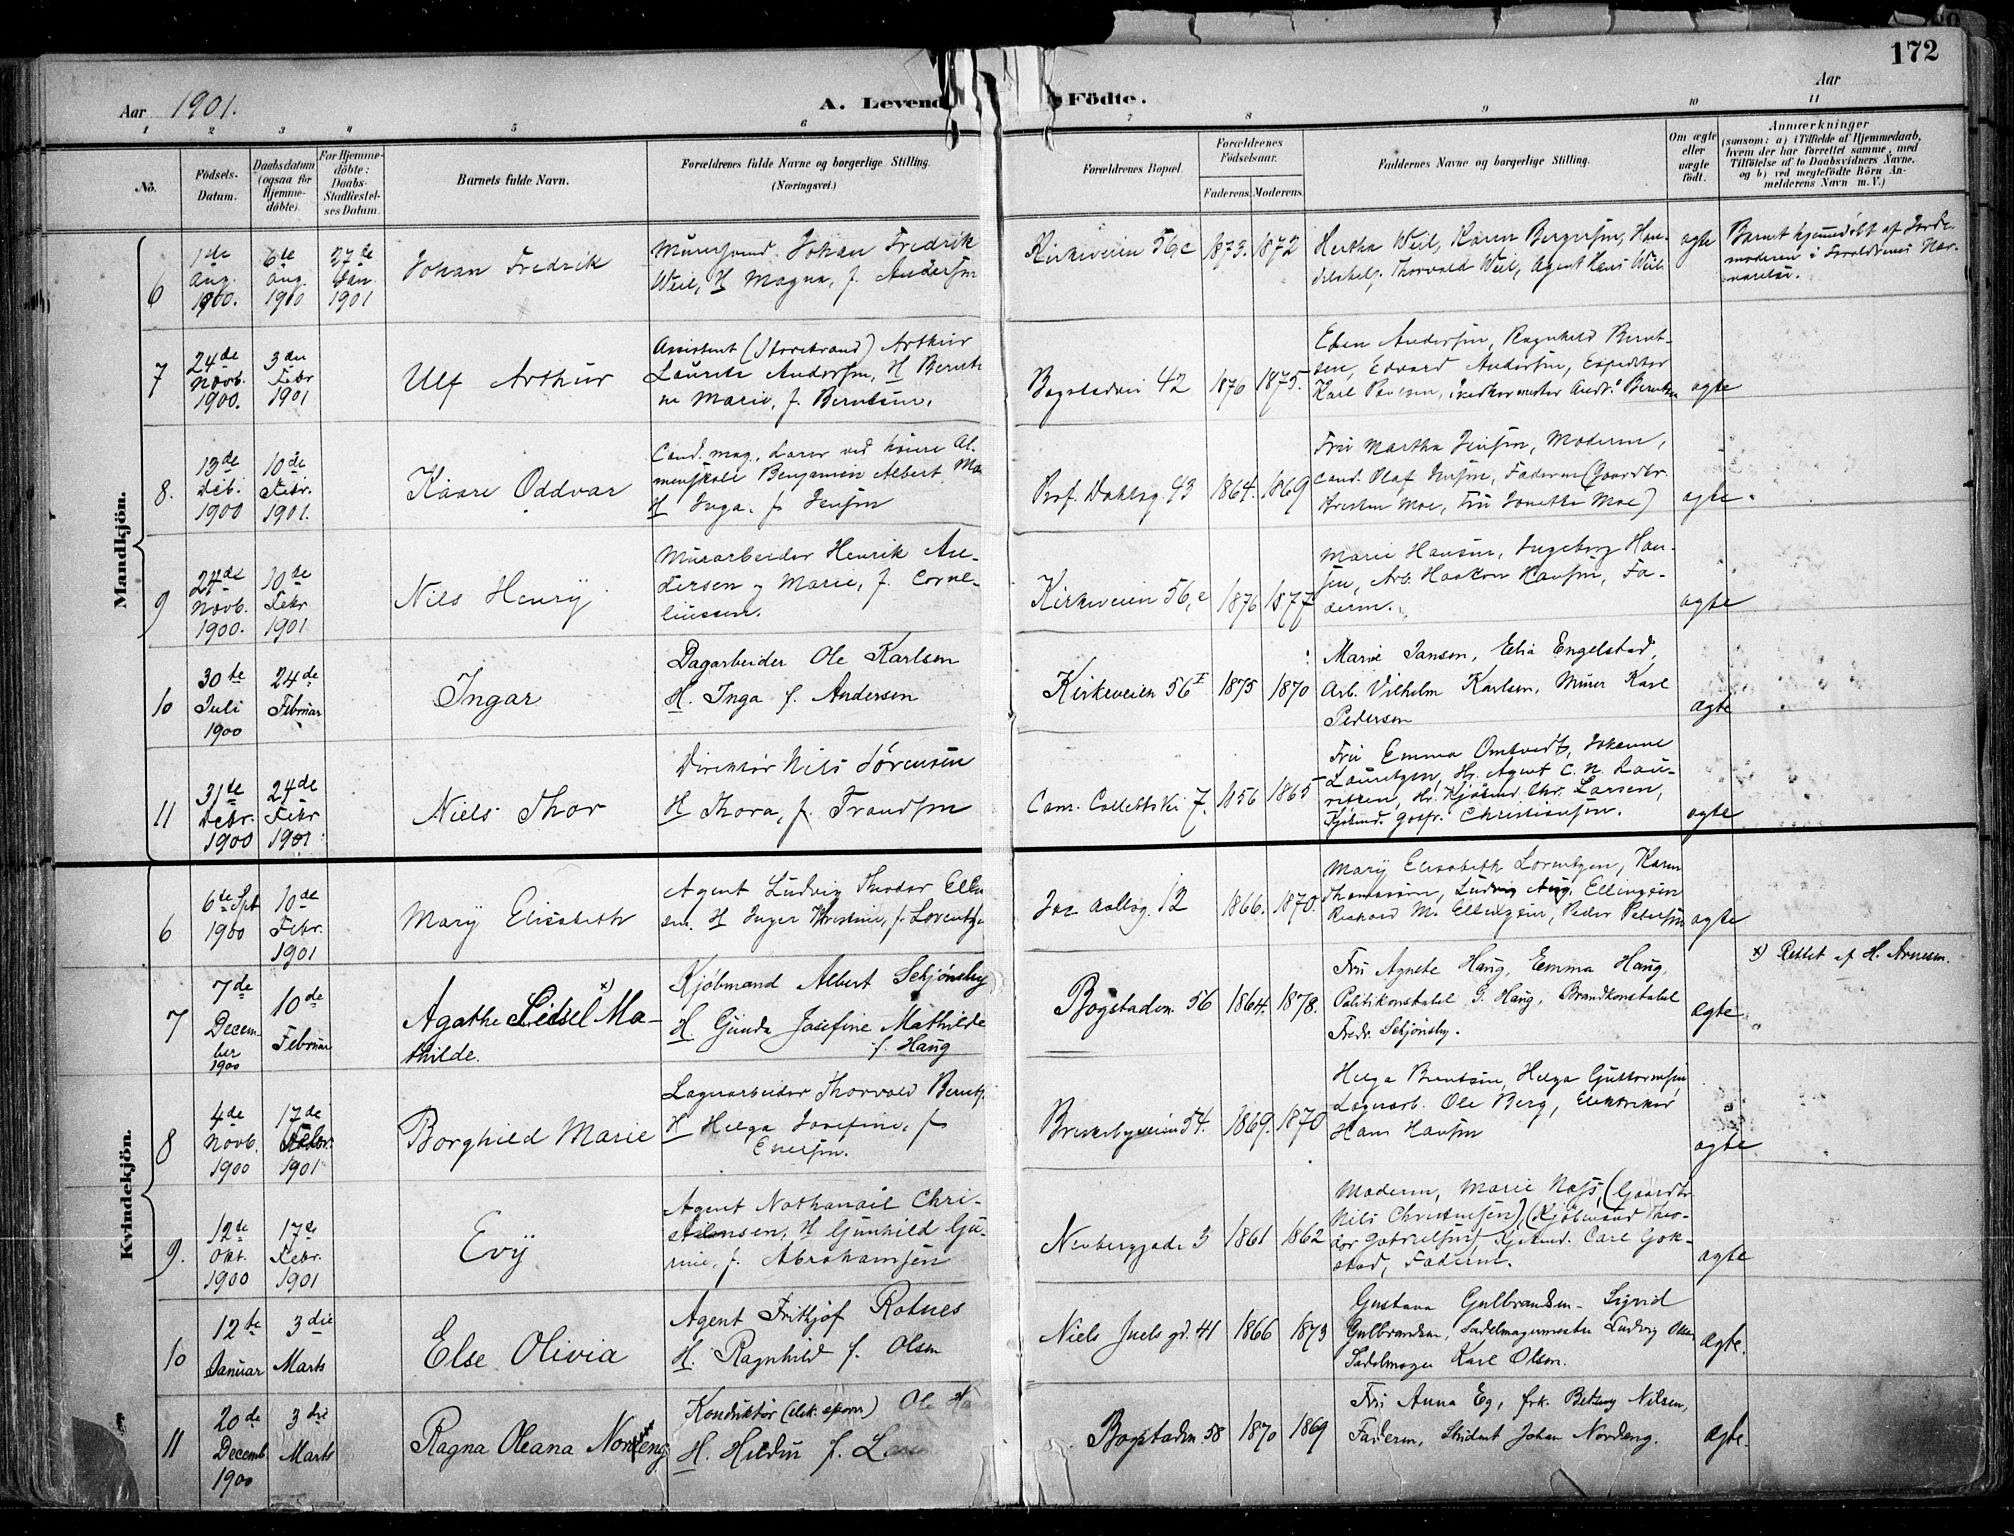 172
Aar 1901. A. Levend Födte. Aar
1 2 3 4 5 6 7 8 9 10 11
No. Födsels-Datum. Daabsdatum (ogsaa for Hjemme-döbte). For Hjemme-döbte: Daabs-Stadfæstel-ses Datum. Barnets fulde Navn. Forældrenes fulde Navne og borgerlige Stilling. (Næringsvei.) Forældrenes Bopæl. Forældrenes Födselsaar. Faderens. Moderens. Faddernes Navne og borgerlige Stilling. Om ægte eller uægte födt. Anmærkninger (saasom: a) i Tilfælde af Hjemmedaab, hvem der har forrettet samme, med Tilföielse af to Daabsvidners Navne, og b) ved uegtefödte Börn An-melderens Navn m. V.)
Mandkjön.
6 1ste Aug. 1900. 6te Aug. 1900 27de Jan 1901 Johan Fredrik
Murersvend Johan Fredrik
Weil, H Magna, f. Andersen
Kirkeveien 56c 1873. 1872
Hertha Weil, Karen Bergersen, Han-
delsbest. Thorvald Weil, Agent Hans Weil
ægte
Barnet hjemmedöbt af Jorde-
moderen i Forældrenes Nær-
værelse.
7 24de Novb. 1900. 3die Febr 1901 Ulf Arthur
Assistent (Storebrand) Arthur
Laurits Andersen, H Bernti-
ne Marie, f. Berntsen.
Bogstadvei 42 1876 1875.
Andersen, Ragnhild Bernt-
sen, Edvard Andersen, Expeditør
Karl Andr. Berntsen
ægte
8. 13de Deb. 1900 10de Febr. 1901. Kaare Oddvar
Cand. mag. Lærer ved høiere Al-
menskole Benjamin Albert Moe
H Inga, f. Jensen
Prof. Dahlsg. 43 1864. 1869
Fru Martha Jensen, Moderen,
Cand. Olaf Jensen, Faderen (Gaardbr.
Kristen Moe, Fru Jonette Moe)
ægte.
9 24de Novb. 1900. 10de Febr 1901 Nils Henry
Murarbeider Henrik An-
dersen og Marie, f. Corne-
liussen.
Kirkeveien 56,c 1876 1877
Marie Hansen, Ingeborg Han-
sen, Arb. Haakon Hansen, Fa-
deren.
ægte
10 30te Juli 1900 24de Februar Ingar
Dagarbeider Ole Karlsen
H. Inga f. Andersen
Kirkeveien 56 1875 1870
Marie Jansen, Elia Engelstad,
Arb. Vilhelm Karlsen, Murer Karl
Pedersen
ægte
11 31te Debr. 1900 24de Febr 1901 Niels Thor
Direktør Nils Sørensen
H Thora, f. Frandsen
Cam. Collettsvei 7. 1856 1865
Fru Emma Omtvedt, Johanne
Lauritzen, Hr. Agent C. N. Lau-
ritzen, Hr. Kjøbmd. Chr. Larsen,
Kjøbmd. Christiansen.
ægte
Kvindekjön.
6 6te Spt 1900 10de Febr. 1901 Mary Elisabeth
Agent Ludvig Theodor Elling-
sen. H Inger Kristine, f. Lorentze
Jac Aallsg. 12 1866. 1870.
Mary Elisabeth Lorentzen, Karen
Thomassen, Ludvig Aug. Ellingsen
Rickard M. Ellingsen, Peder Petersen
ægte
7 7de Decem-ber 1900 10de Februar Agathe Sidsel x) Ma-
thilde.
Kjøbmand Albert Schjønsby
H. Gunda Josefine Mathilde
f. Haug
Bogstadvn. 56 1864. 1878.
Fru Agnete Haug, Emma Haug,
Politikonstabel G. Haug, Brandkonstabel
Fredr. Schjønsby.
ægte
x) Rettet af H. Arnesen.
8 4de Novb. 1900 17de Febr. 1901 Borghild Marie
Lagerarbeider Thorvald Bernts
H Helga Josefine, f.
Eversen.
Briskebyveien 54. 1869. 1870
Helga Berntsen, Helga Guttormsen,
Lagerarb. Ole Berg, Elektriker
Hans Hansen
ægte
9. 12de Okt. 1900 17de Febr. 1901 Evy
Agent Nathanail Chri-
stensen, H Gunhild Gu-
rine, f. Abrahamsen
Neuberggade 3 1861 1862
Moderen, Marie Næss, (Gaardbr.
Nils Christensen), (Kjøbmand Theo-
dor Gabrielsen) Carl Gok-
stad, Faderen.
ægte
10 12te Januar 3die Marts Else Olivia
Agent Frithjof Rotnes
H. Ragnhild f. Olsen
Niels Juels gd. 41 1866 1873
Gustava Gulbrandsen - Sigrid
Gulbrandsen, Sadelmagermester Ludvig Olsen
Sadelmager Karl Olsen.
ægte.
11 20de Decemb 1900 3die Marts Ragna Oleana Nordeng
Konduktør (elek. sporv.) Ole
H. Hilda f.
Bogstadvn. 58 1870 1869
Fru Anna Eg, frk. Betzy Nilsen,
Faderen, Student Johan Nordeng.
ægte.